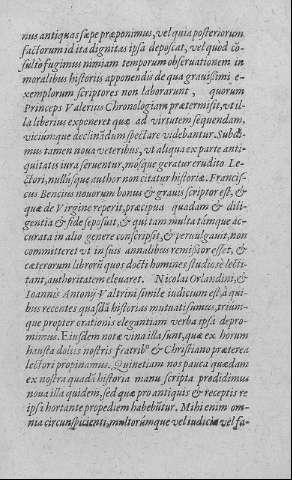 nus antiquas sæpe præponimus, vel quia posteriorum
factorum id ita dignitas ipsa deposcat, vel quod cō-
sultò fugimus nimiam temporum obseruationem in
moralibus historiis apponendis de qua grauissimi e-
xemplorum scriptores non laborarunt, quorum
Princeps Valerius Chronologiam prætermisit, vt il-
la liberius exponeret quæ ad virtutem sequendam,
viciumque declinādum spectare videbantur. Subdi-
mus tamen noua veteribus, vt aliqua ex parte anti-
quitatis iura seruentur, mosque geratur erudito Le-
ctori, nullisque author non citatur historiæ. Francis-
cus Bencius nouorum bonus & grauis scriptor est, &
quæ de Virgine reperit, præcipua quadam & dili-
gentia & fide seposuit, & qui tam multa támque ac-
curata in alio genere conscripsit, & peruulgauit, non
committeret vt in suis annalibus remissior esset, &
cæterorum librorū quos docti homines studiosè lecti-
tant, authoritatem eleuaret. Nicolai Orlandini, &
Ioannis Antonij Valtrini simile iudicium est, à qui-
bus recentes quasdā historias mutuati sumus, trium-
que propter orationis elegantiam verba ipsa depro-
mimus. Eiusdem notæ vina illa sunt, quæ ex horum
hausta doliis nostris fratribꝰ & Christiano præterea
lectori propinamus. Quinetiam nos pauca quædam
ex nostra quadā historia manu scripta prodidimus
noua illa quidem, sed quæ pro antiquis & receptis re
ipsa hortante propediem habebūtur. Mihi enim om-
nia circunspicienti, multorúmque vel iudicia vel fa-